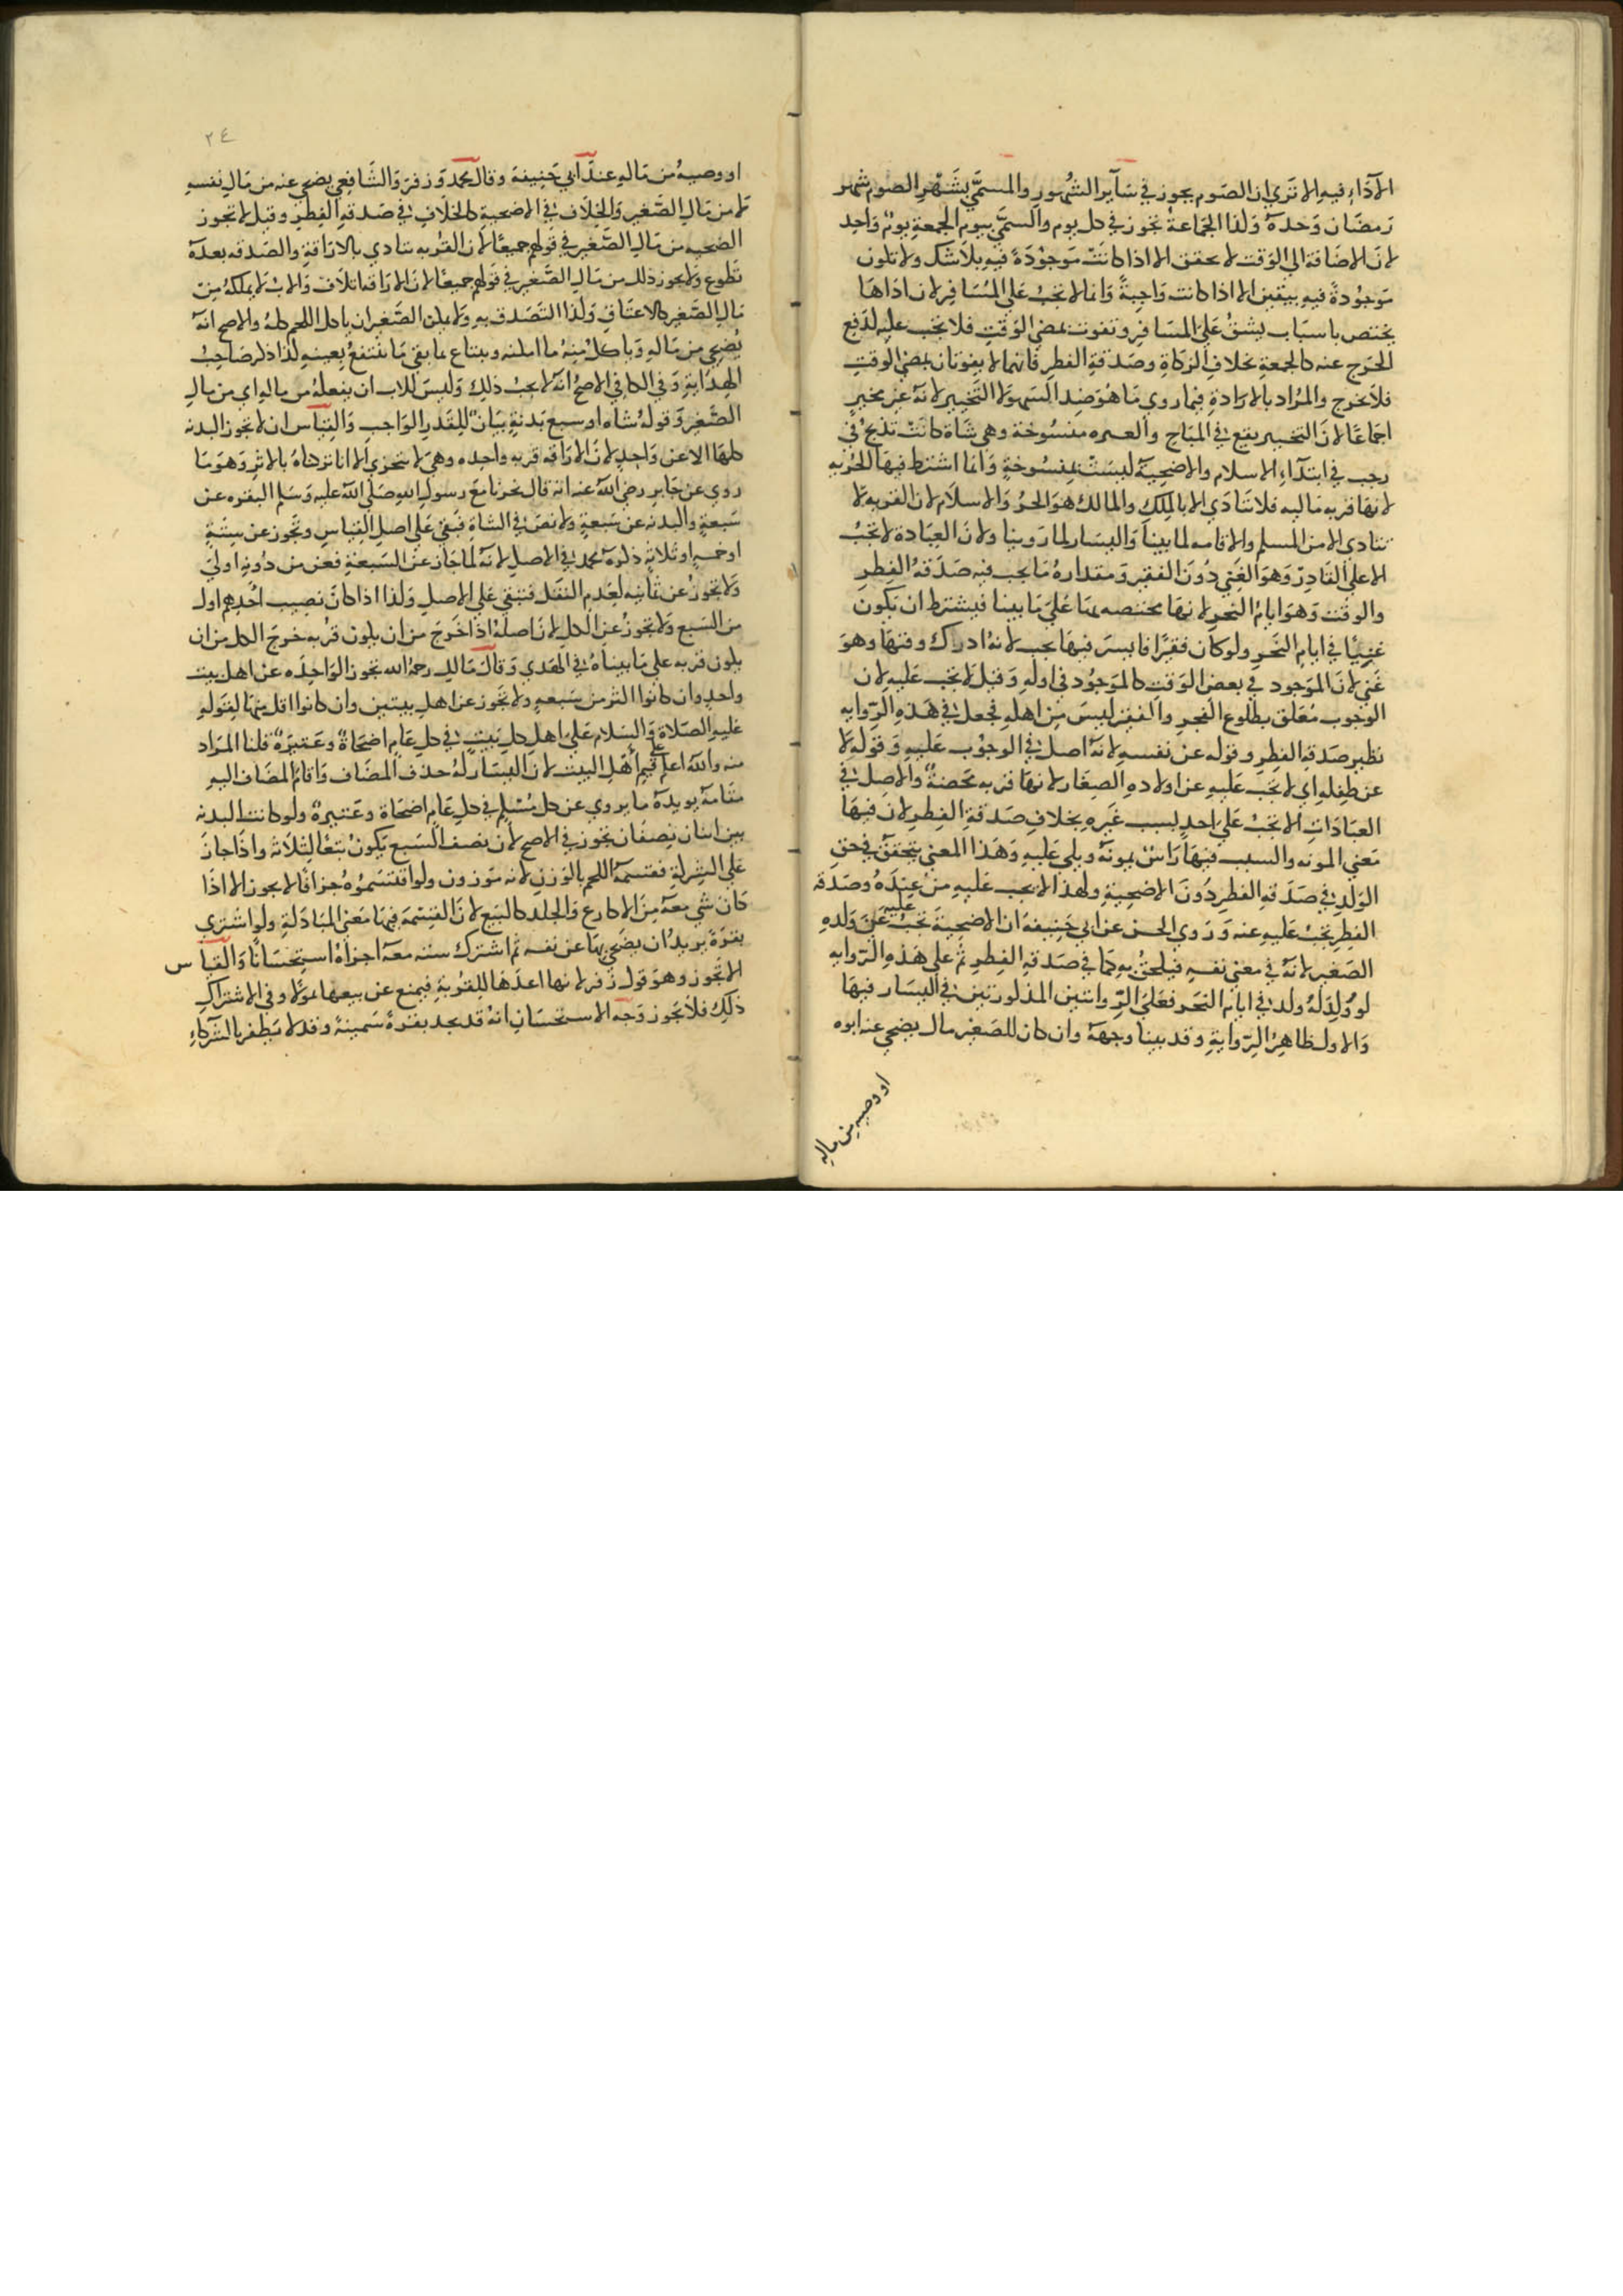 الآدَاءِ فيهِ الا تَرَي ان الصَوم يجوز في سَآير الشُهورِ والمسمَّي بشَهْرِ الصَوم شهر
رَمضَان وَحدَهُ وَلذا الجَمَاعة تجوز في كل يوم والمسمَّي بيوم الجمعةِ يومٌ وَاحِد
لانَ الاضَافة الي الوَقت لا تحقق الا اذا كانَتْ مَوجُوْدَةً فيهِ بلاَ شَك ولا تكون
مَوجُودةً فيهِ بيَقين الا اذا كانت وَاجِبةً وَانما لا تجَبُ عَلي المُسَافِرِ لان ادَاهَا
يختص باسبَاب يشقُ عَلي المسَافِر وتفوت بمضي الوَقتِ فلا تجَب عليهِ لدَفع
الحَرَج عنه كالجمعةِ بخلافِ الزكاةِ وصَدَقةِ الفطرِ فانهما لا يفوتان بمضي الوقتِ
فلاَ حَرج والمرَاد بالارادةِ فيما روي مَا هُوَ ضِد السَهو لاَ التَخيِير لانهُ غير مخيرٍ
اجمَاعًا لانَ التخيير يقع في المبَاح والعتيره منسُوخة وهي شَاة كانَتْ تذبَح في
رجب في ابتدَآءِ الاسلام والاضحِيَة ليسَتْ بمنسُوخةٍ وَانما اشتطِ فيهَا الحُرّيه
لانهَا قربه مَاليه فلا تتَادَي الا بالمِلكِ والمالك هوَ الحرُ وَالاسلاَم لان القربه لا
تتادي الا من المسلم والاقامه لما بيناَ وَاليسَار لما رَوينا ولانَ العبَادة لا تجَبُ
الا عَلي القَادِرِ وَهوَ الغَني دُونَ الفَقيرِ وَمقدارهُ مَا يجب فيه صَدَقةُ الفِطرِ
والوقت وَهوَ ايامُ النحرِ لانهَا مختصه بهَا عَليَ مَا بينا فيشترط ان يَكون
غنِيًا في ايام النَحرِ ولو كان فقيرًا فايسرَ فيهَا يجب لانهُ ادرك وقتهَا وهوَ
غَني لانَ الموَجود في بعض الوَقتِ كالموَجُود في اولهِ وَقيل لاَ تجب عَليه لان
الوجوب مُعَلق بطلوع الفجرِ والفقير ليسَ مِن اهلهِ فجعل في هَذهِ الرِوايه
نظير صَدقةِ الفِطر وقوله عن نفسهِ لانهُ اصل في الوجوْب عَليهِ وَقوله لا
عن طِفلهِ اي لا تجَب عَليهِ عن اولادهِ الصِغَار لانهَا قربه مَحضة والاصل في
العبَادَاتِ الا تجبُ عَلي احدٍ بسبب غَيرهِ بخلافِ صَدقةِ الفِطرِ لان فيهَا
مَعني المونه والسبب فيهَا رَاسٌ يمونهُ ويلي عَليهِ وَهَذا المعني يتحَققُ في حَقِ
الوَلدِ في صَدَقةِ الفطرِ دُونَ الاضحِيةِ ولهذا لا يجب عَليهِ من عِندَهُ وصَدَقة
الفِطرِ تجبُ عَليهِ عنه وَرَوي الحسن عن ابي حَنيفة ان الاضحيةَ تجبُ عَليْهِ عَن وَلدهِ
الصَغيرِ لانهُ في معني نفسهِ فيلحَقُ بهِ كما في صَدقةِ الفِطرِ ثم علي هَذهِ الرّوايه
لو وُلِدَ لهُ ولد في ايام النحر فعَلي الرّوايتين المذكورتين في اليسَار فيهَا
وَالاول ظاهِرُ الرِوايةِ وقد بينا وجههُ وان كان للصَغيرِ مال يضحي عنه ابوه
او وصيه من مالهِ
٢٤
او وصيهُ من مَالهِ عندَ ابي حَنِيفة وقال محمد وَزفرَ وَالشَافِعي يضحي عنه من مَالِ نفسهِ
لا من مَالِ الصَّغيرِ وَالخِلاف في الاضحيةِ كالخلاَفِ في صَدقةِ الفِطرِ وقيل لا تجوز
التضحيه من مَالِ الصَّغيرِ في قولهم جميعًا لان القرُبه تتادي بالارَاقةِ والصَدقه بعدَهُ
تَطوع وَلا يجوز ذلك من مَالِ الصَّغيرِ في قولهم جميعًا لانَ الارَاقة اتلاَف وَالابُ لا يملكهُ من
مَالِ الصَّغيرِ كالاعتَاقِ وَلذا التَصَدق بهِ وَلا يمكن الصَغير ان ياكل اللحم كلهُ والاصح انهُ
يُضحي من مَالهِ وَياكلُ مِنهُ ما امكنه ويبتاع بما بقي مَا ينتفعُ بِعينهِ كذا ذكر صَاحِبُ
الهدَايةِ وَفي الكافي الاصح انهُ لا يجبُ ذلِك وَليسَ للاب ان يفعلهُ من مالهِ اي من مالِ
الصَّغيرِ وَقولهُ شاه او سبع بَدنةٍ بيَانٌ للِقدرِ الوَاجبِ وَالقِياَس ان لا تجوز البدنه
كلها الا عن وَاحِدٍ لانَ الارَاقه قربه واحِده وهي لا تتجزي الا انا تركناهُ بالاثرِ وَهوَ مَا
روي عن جَابر رضي اللهُ عنه انه قال نحرنا معَ رسولِ اللهِ صَلي اللهُ عليه وَسَلم البقره عن
سَبعةٍ والبدنه عن سَبعةٍ ولا نصَ في الشاةِ فبقي عَلي اصلِ القِياسِ وتجَوز عن سِتةٍ
او خمسهٍ او ثلاثةٍ ذكرهُ محمد في الاصلِ لانهُ لما جَازَ عَن السَبعةِ فعن من دُونهم اَولي
وَلا تجَوزُ عن ثمانيه لعَدم النقل فتبقي عَلي الاصل وَلذا اذا كانَ نصِيب احُدِهم اول
من السَبع وَلا تجوزُ عن الكلِ لانَ اصلهُ اذا خرَجَ من ان يكون قربه خرجَ الكل من ان
يكون قربه علي مَا بيناهُ في الهَدي وَقال مَالك رحمهُ الله تجوز الوَاحِدَه عن اهل بيت
واحدٍ وان كانوا اكثر من سَبعهِ ولا تجَوز عن اهلِ بيتين وان كانوا اقل منهَا لِقَولهِ
عَليهِ الصَلاةُ وَالسَلام عَلي اهلِ كلِ بَيتٍ في كل عَام اضحَاةٌ وعَتيرَةٌ قلنا المرَاد
منه وَاللهُ اعلم علي قيم اَهْلِ البيت لان اليسَار لهُ حذف المضَاف وَاقامَ المضَاف اليهِ
مقامَهُ يويدهُ ما يروي عن كل مُسْلِم في كل عَامٍ اضحَاة وعَتيرةٌ ولو كانت البدنه
بين اثنان نِصفَان تجوز في الاصح لان نصف السَبع يَكونُ تبَعًا لِثلاثهِ واذا جازَ
عَلي الشركةِ فقسمةُ اللحم بالوَزنِ لانه مَوزون ولو اقتسَموُهُ جزافًا لا يجوز الا اذَا
كان شي معَهُ مِنَ الاكارع وَالجلد كالبَيع لانَ القِسْمَة فيهَا مَعني المبَادلةِ ولو اشترَي
بقرةً يريدُ ان يضَحي بهَا عن نفسه ثم اشترك ستة معهُ اجزاهُ استِحسَانًا وَالقياس
لا تجَوز وهوَ قول زفر لانها اعدهَا للِقرُبةِ فيمنع عن بيعهَا تمولاً وفي الاشراكِ
ذلِكَ فلا تجَوز وَجه الاستحسَانِ انهُ قد يجد بقرةً سَمينةً وقد لا يَظفر بالشركآءِ